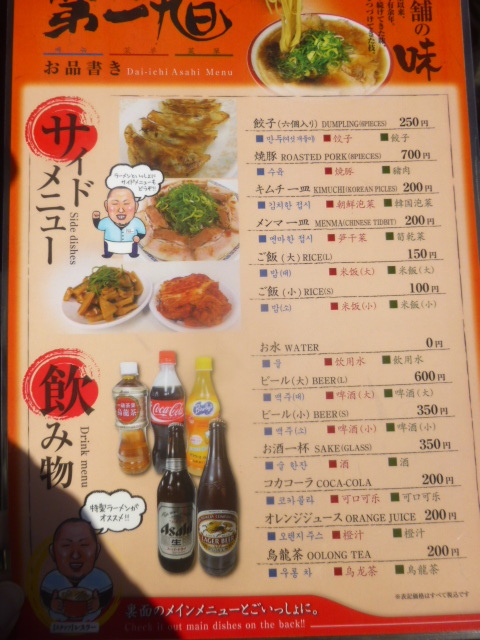 第一旭
お品書き Dai-ichi Asahi Menu
舗の味
サイドメニュー
Side dishes
ラーメンといっしょに
サイドメニューも
どうぞ!
餃子(六個入り) DUMPLING(6PIECES) 250円
餃子 餃子
焼豚 ROASTED PORK(8PIECES) 700円
수육 焼豚 豬肉
キムチ一皿 KIMUCHI(KOREAN PICLES) 200円
김치한 접시 朝鮮泡菜 韓国泡菜
メンマ一皿 MENMA(CHINESE TIDBIT) 200円
멘마한 접시 笋干菜 筍乾菜
ご飯(大) RICE(L) 150円
밥(대) 米饭(大) 米飯(大)
ご飯(小) RICE(S) 100円
밥(소) 米饭(小) 米飯(小)
飲み物
Drink menu
特製ラーメンが
オススメ!!
お水 WATER 0円
물 饮用水 飲用水
ビール(大) BEER(L) 600円
맥주(대) 啤酒(大) 啤酒(大)
ビール(小) BEER(S) 350円
맥주(소) 啤酒(小) 啤酒(小)
お酒一杯 SAKE(GLASS) 350円
술 한잔 酒 酒
コカコーラ COCA-COLA 200円
코카콜라 可口可乐 可口可樂
オレンジジュース ORANGE JUICE 200円
오렌지 주스 橙汁 橙汁
烏龍茶 OOLONG TEA 200円
우롱 차 乌龙茶 烏龍茶
※表記価格はすべて税込です
Coca-Cola
烏龍茶
Asahi
生
KIRIN
LAGER BEER
裏面のメインメニューとごいっしょに。
Check it out main dishes on the back!!